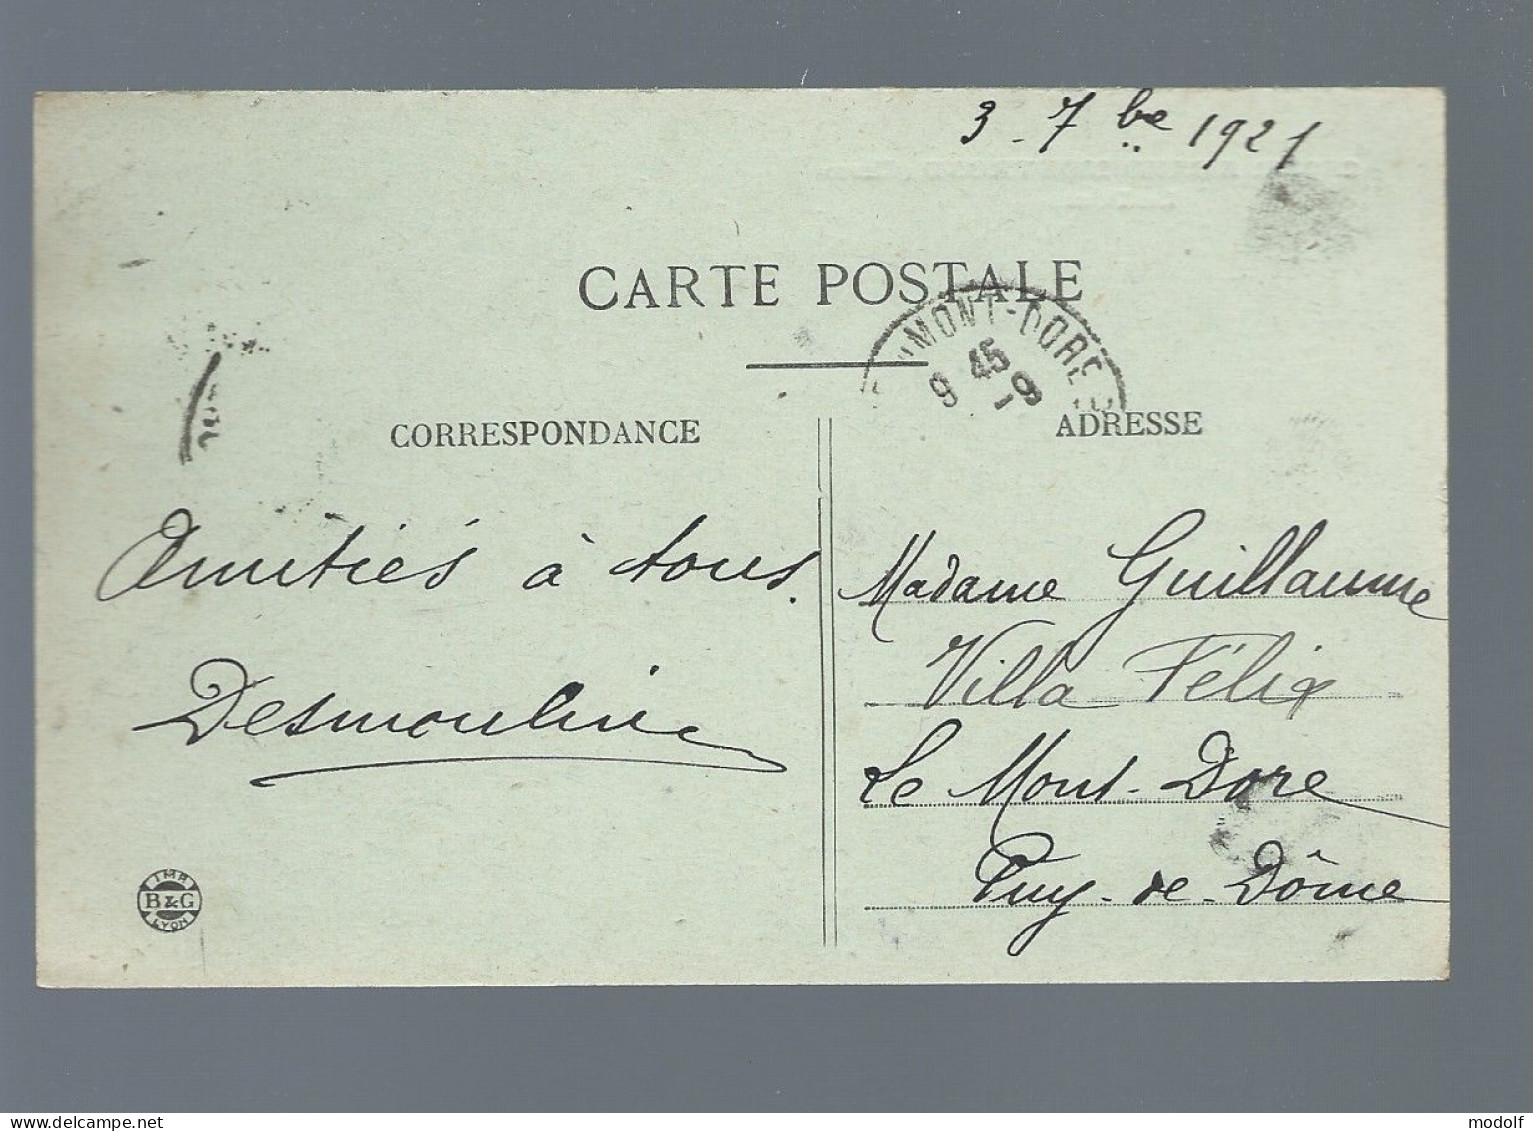 3 - 7 bre 1921
CARTE POSTALE
MONT-DORE
9 45
1 9
CORRESPONDANCE
ADRESSE
Amitiés à tous.
Desmoulins
Madame Guillaume
Villa Félix
Le Mont-Dore
Puy-de-Dôme
IMP.
B & G
LYON
delcampe.net
modolf